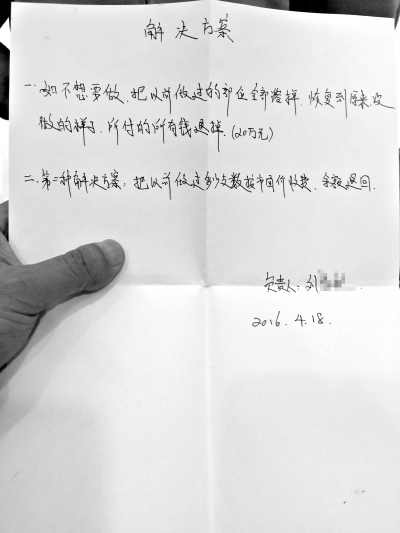 解决方案
一.如不想要做,把以前做过的部位全部磨掉,恢复到原来没
做的样子.所付的所有钱退掉.(20万元)
二.第二种解决方案:把以前做过多少支数按市面价收费.余额退回.
人:刘
2016.4.18.